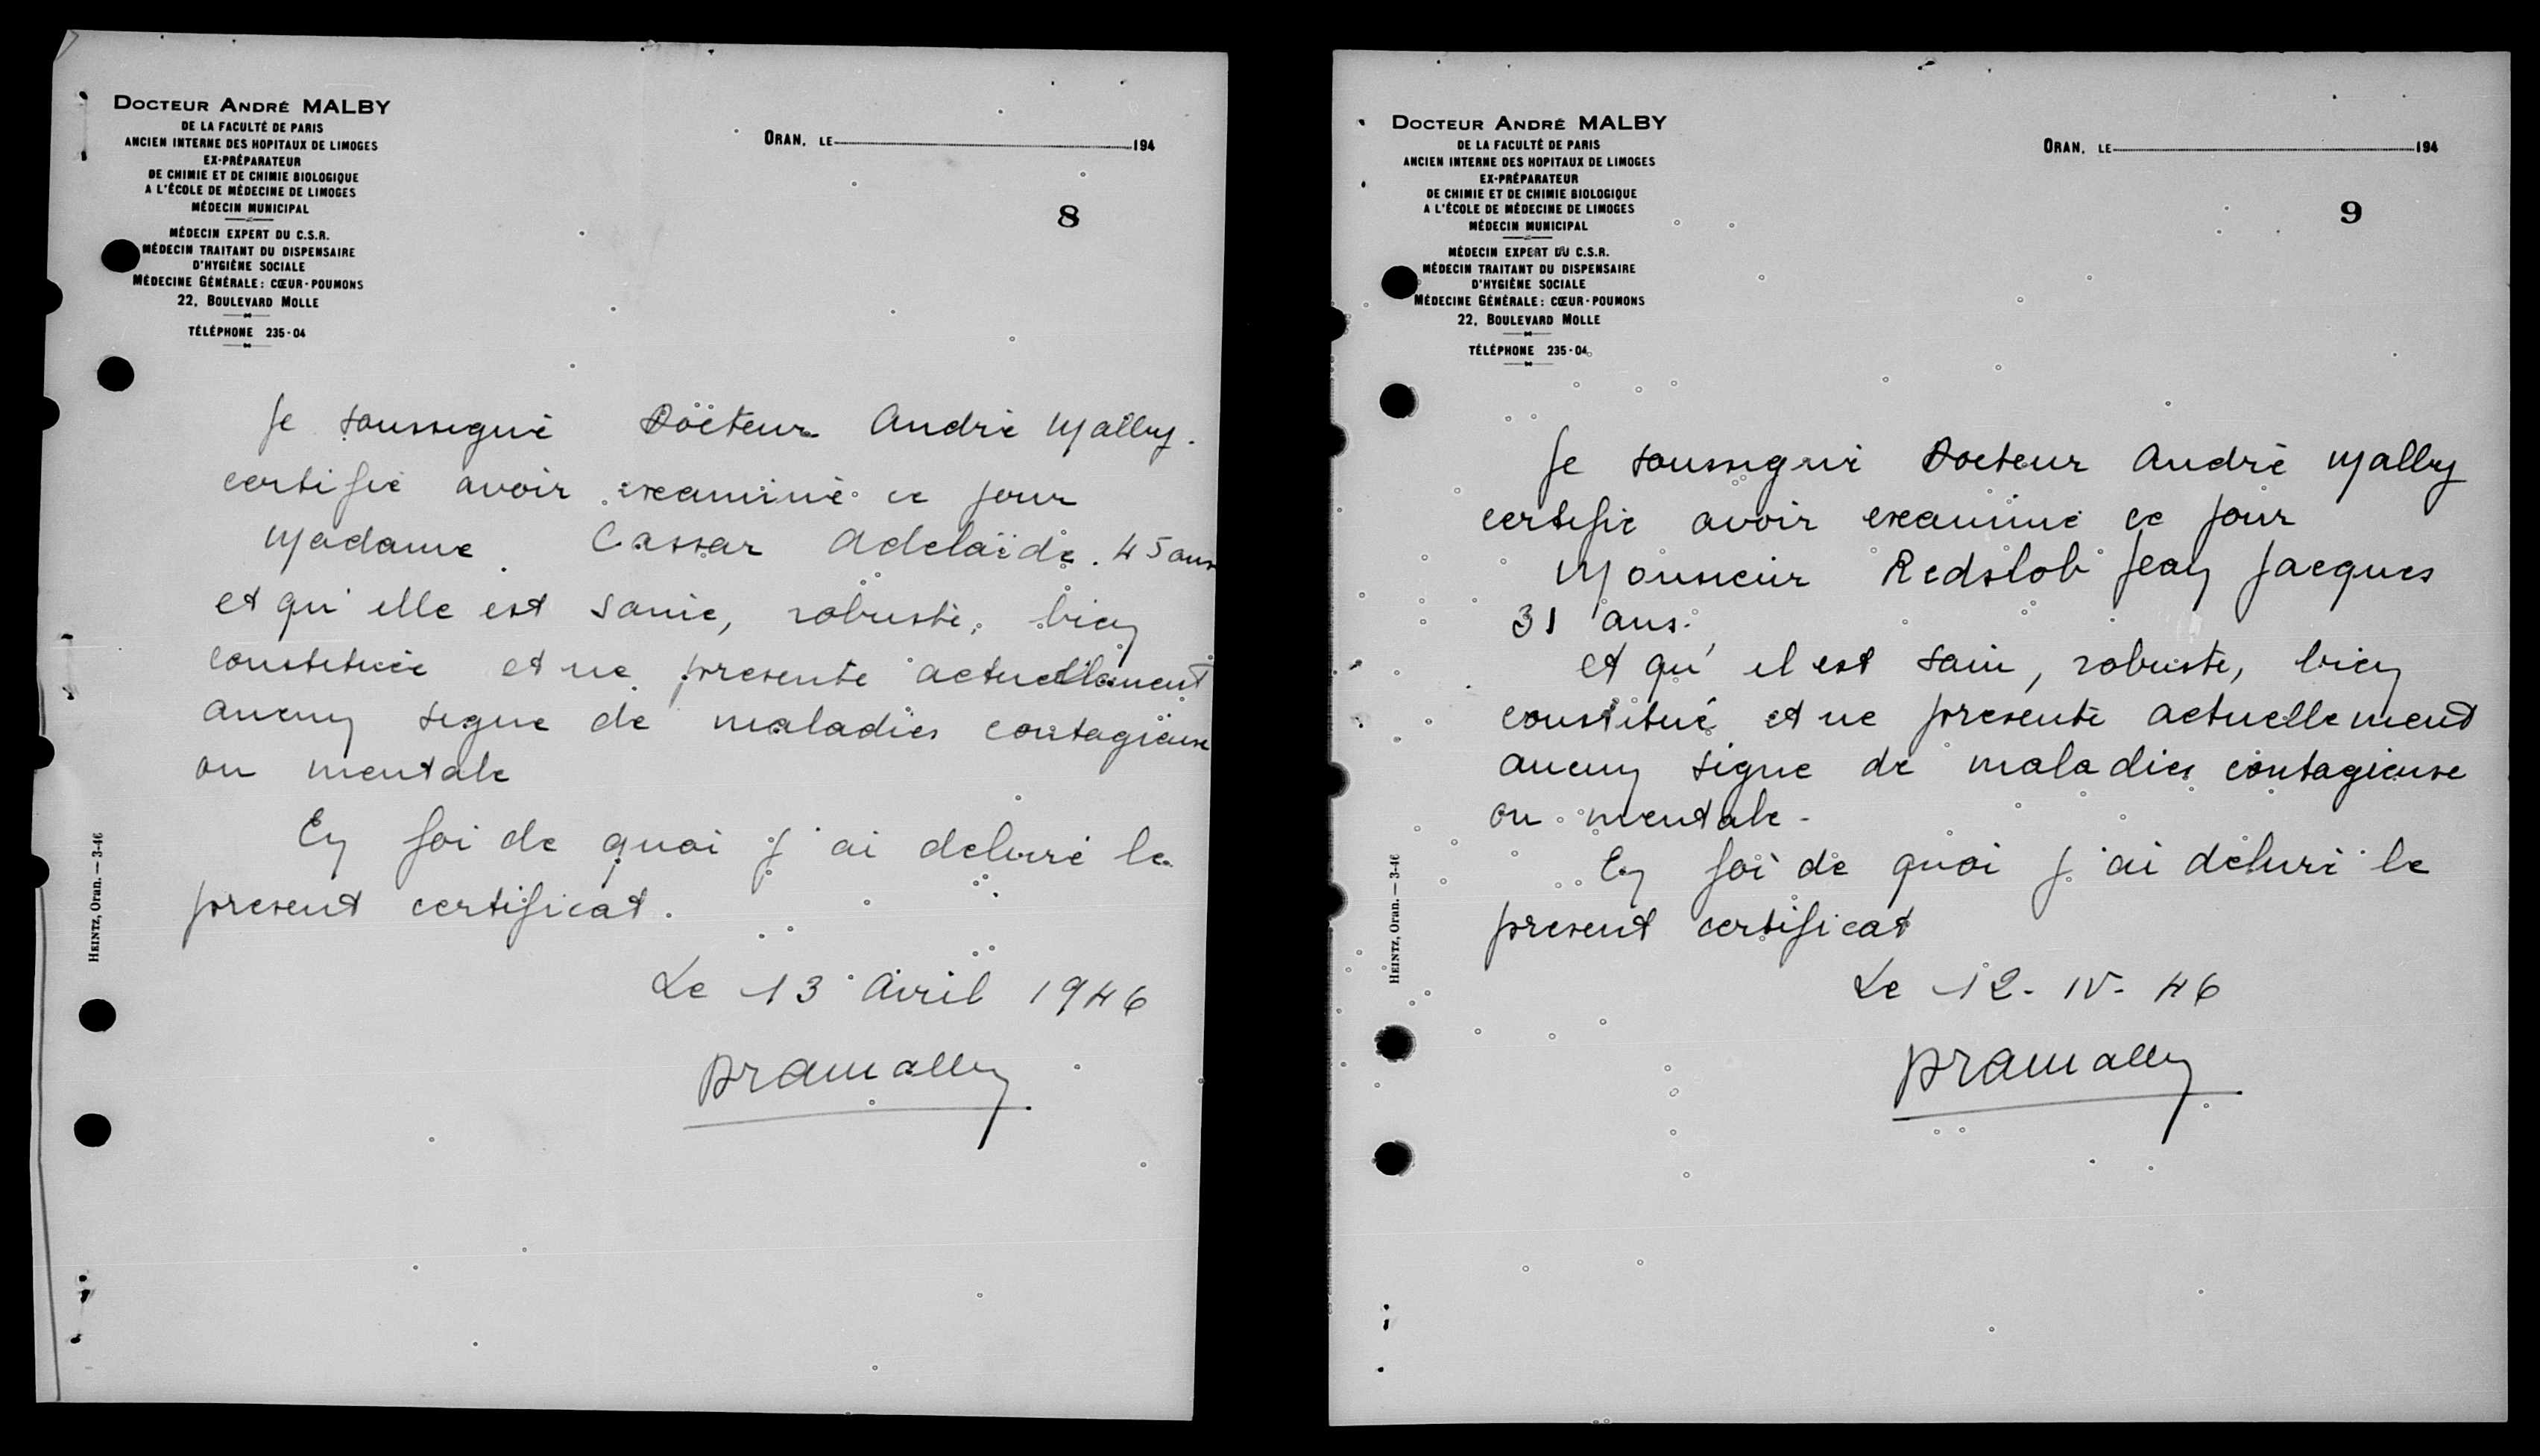 DOCTEUR ANDRÉ MALBY
DE LA FACULTÉ DE PARIS
ANCIEN INTERNE DES HOPITAUX DE LIMOGES
EX-PRÉPARATEUR
DE CHIMIE ET DE CHIMIE BIOLOGIQUE
A L'ÉCOLE DE MÉDECINE DE LIMOGES
MÉDECIN MUNICIPAL
MÉDECIN EXPERT DU C.S.R.
MÉDECIN TRAITANT DU DISPENSAIRE
D'HYGIÈNE SOCIALE
MÉDECINE GÉNÉRALE: CŒUR-POUMONS
22, BOULEVARD MOLLE
TÉLÉPHONE 235-04
ORAN, LE 194
8
Je soussigné Docteur André Malby.
certifie avoir examiné ce jour
Madame Cassar Adelaïde. 45 ans
et qu'elle est saine, robuste, bien
constituée et ne presente actuellement
aucun signe de maladies contagieuse
ou mentale
En foi de quoi j'ai delivré le
present certificat.
Le 13 Avril 1946
DrAMalby
HEINTZ, Oran. — 3-46
DOCTEUR ANDRÉ MALBY
DE LA FACULTÉ DE PARIS
ANCIEN INTERNE DES HOPITAUX DE LIMOGES
EX-PRÉPARATEUR
DE CHIMIE ET DE CHIMIE BIOLOGIQUE
A L'ÉCOLE DE MÉDECINE DE LIMOGES
MÉDECIN MUNICIPAL
MÉDECIN EXPERT DU C.S.R.
MÉDECIN TRAITANT DU DISPENSAIRE
D'HYGIÈNE SOCIALE
MÉDECINE GÉNÉRALE: CŒUR-POUMONS
22, BOULEVARD MOLLE
TÉLÉPHONE 235-04
ORAN, LE 194
9
Je soussigné Docteur André Malby
certifie avoir examiné ce jour
Monsieur Redslob Jean Jacques
31 ans.
et qu'il est sain, robuste, bien
constitué et ne presente actuellement
aucun signe de maladies contagieuse
ou mentale -
En foi de quoi j'ai delivré le
present certificat
Le 12 - IV - 46
DrAMalby
HEINTZ, Oran. — 3-46